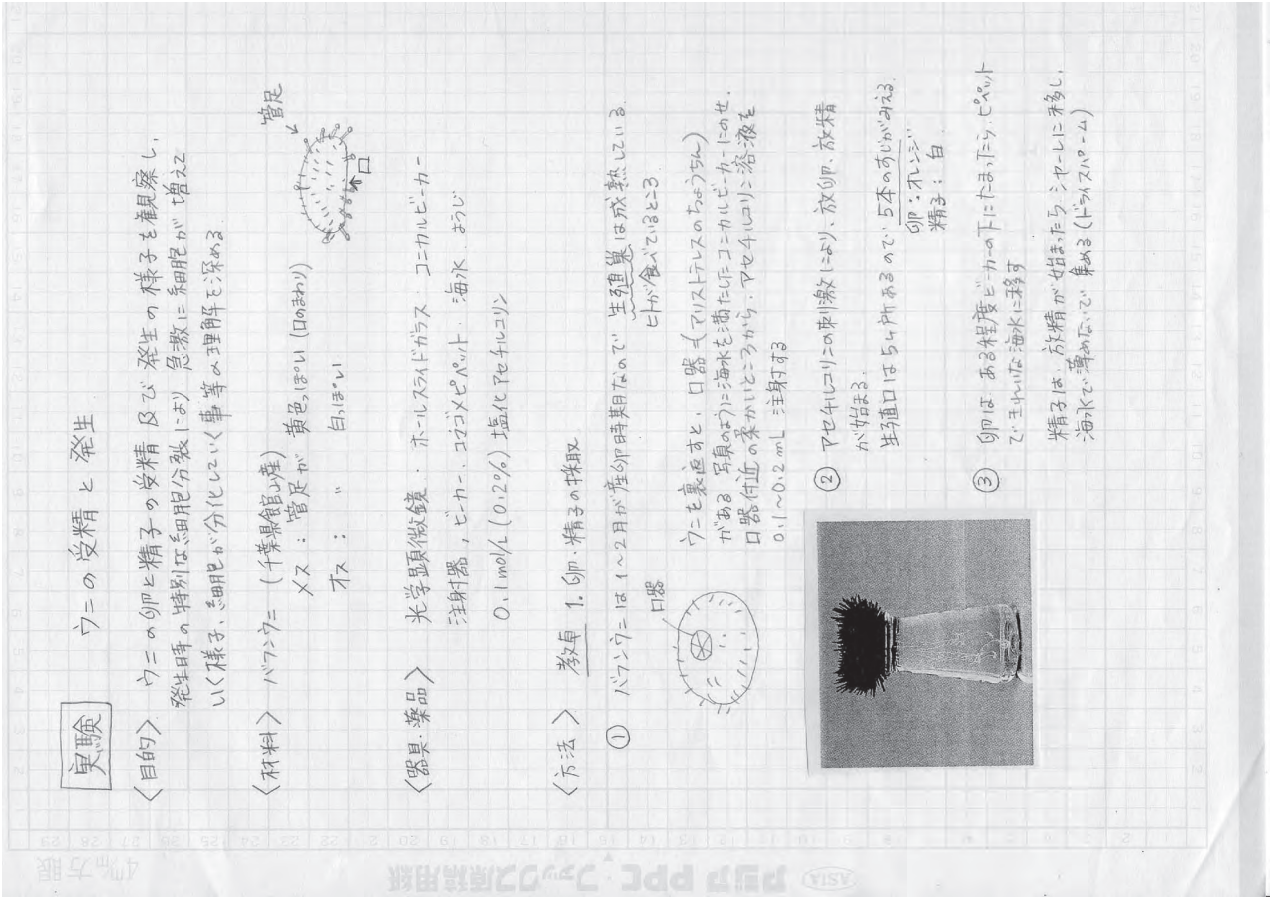 実験　ウニの受精と発生
〈目的〉 ウニの卵と精子の受精及び発生の様子を観察し、
発生時の特別な細胞分裂により 急激に細胞が増えて
いく様子、細胞が分化していく事等の理解を深める
〈材料〉 バフンウニ （千葉県館山産）
メス： 管足が 黄色っぽい（口のまわり）
オス： 〃 白っぽい
管足
口
〈器具・薬品〉 光学顕微鏡・ホールスライドガラス・コニカルビーカー
注射器，ビーカー・コマゴメピペット・海水・ようじ
0.1mol/L（0.2%）塩化アセチルコリン
〈方法〉 教卓 1. 卵・精子の採取
① バフンウニは1〜2月が産卵時期なので 生殖巣は成熟している
ヒトが食べているところ
口器
ウニを裏返すと、口器（アリストテレスのちょうちん）
がある 写真のように海水を満たしたコニカルビーカーにのせ、
口器付近の柔かいところから、アセチルコリン溶液を
0.1〜0.2mL 注射する
② アセチルコリンの刺激により、放卵、放精
が始まる。
生殖口は5ヶ所あるので、5本のすじがみえる。
卵：オレンジ
精子：白
③ 卵は ある程度ビーカーの下にたまったら、ピペット
できれいな海水に移す
精子は、放精が始まったら、シャーレに移し、
海水で薄めないで 集める（ドライスパーム）
4㎜方眼
アジア PPC ファックス原稿用紙
ASIA